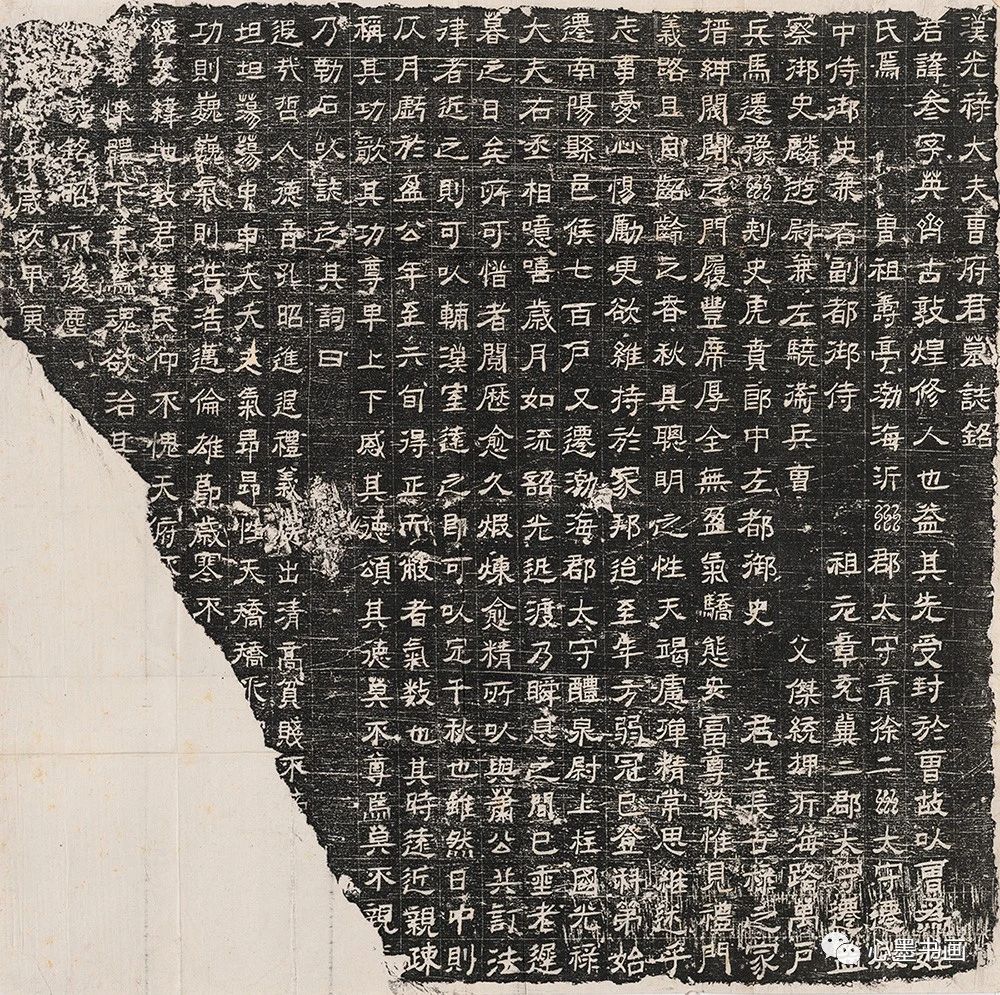 漢光祿大夫曹府君墓誌銘
君諱叄字英齊古敦煌修人也益其先受封於曹故以曹為姓
氏焉 曾祖壽亭渤海沂州郡太守青徐二州太守遷
中侍御史兼右副都御侍 祖元章兖冀二郡太守遷監
察御史麟游尉兼左驍衞兵曹 父傑統押沂海路萬戶
兵馬遷豫州刺史虎賁郎中左都御史 君生長吉祿之家
搢紳閥閱之門履豐席厚全無盈氣驕態安富尊榮惟見禮門
義路且自齠齡之春秋具聰明之性天竭慮殫精常思維述乎
志事憂心惕勵更欲維持於家邦迨至年方弱冠已登科第始
遷南陽縣邑候七百戶又遷渤海郡太守醴泉尉上柱國光祿
大夫右丞相噫嘻歲月如流韶光迅渡乃瞬息之間已垂老遲
暮之日矣所可惜者閱歷愈久煆煉愈精所以與蕭公共訂法
律者近之則可以輔漢室遠之即可以定千秋也雖然日中則
仄月虧於盈公年至六旬得正而斃者氣数也其時遠近親疎
稱其功歌其功尊卑上下感其德頌其德莫不尊焉莫不親
乃勒石以誌之其詞曰
遐哉哲人德音孔昭進退禮義 出清高貧賤不
坦坦蕩蕩申申夭夭 氣昻昻性天橋橋
功則巍巍氣則浩浩邁倫雄 歲寒不
經天緯地致君澤民仰不愧天俯
下筆 魂欲治其
誌銘昭示後
年歲次甲寅
心墨书画